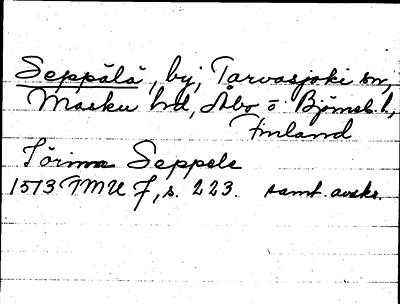 Seppälä, by, Tarvasjoki sn,
Masku hd, Åbo o Björneb. l,
Finland
Törima Seppele
1513 TMU F, s. 223. samt. avskr.